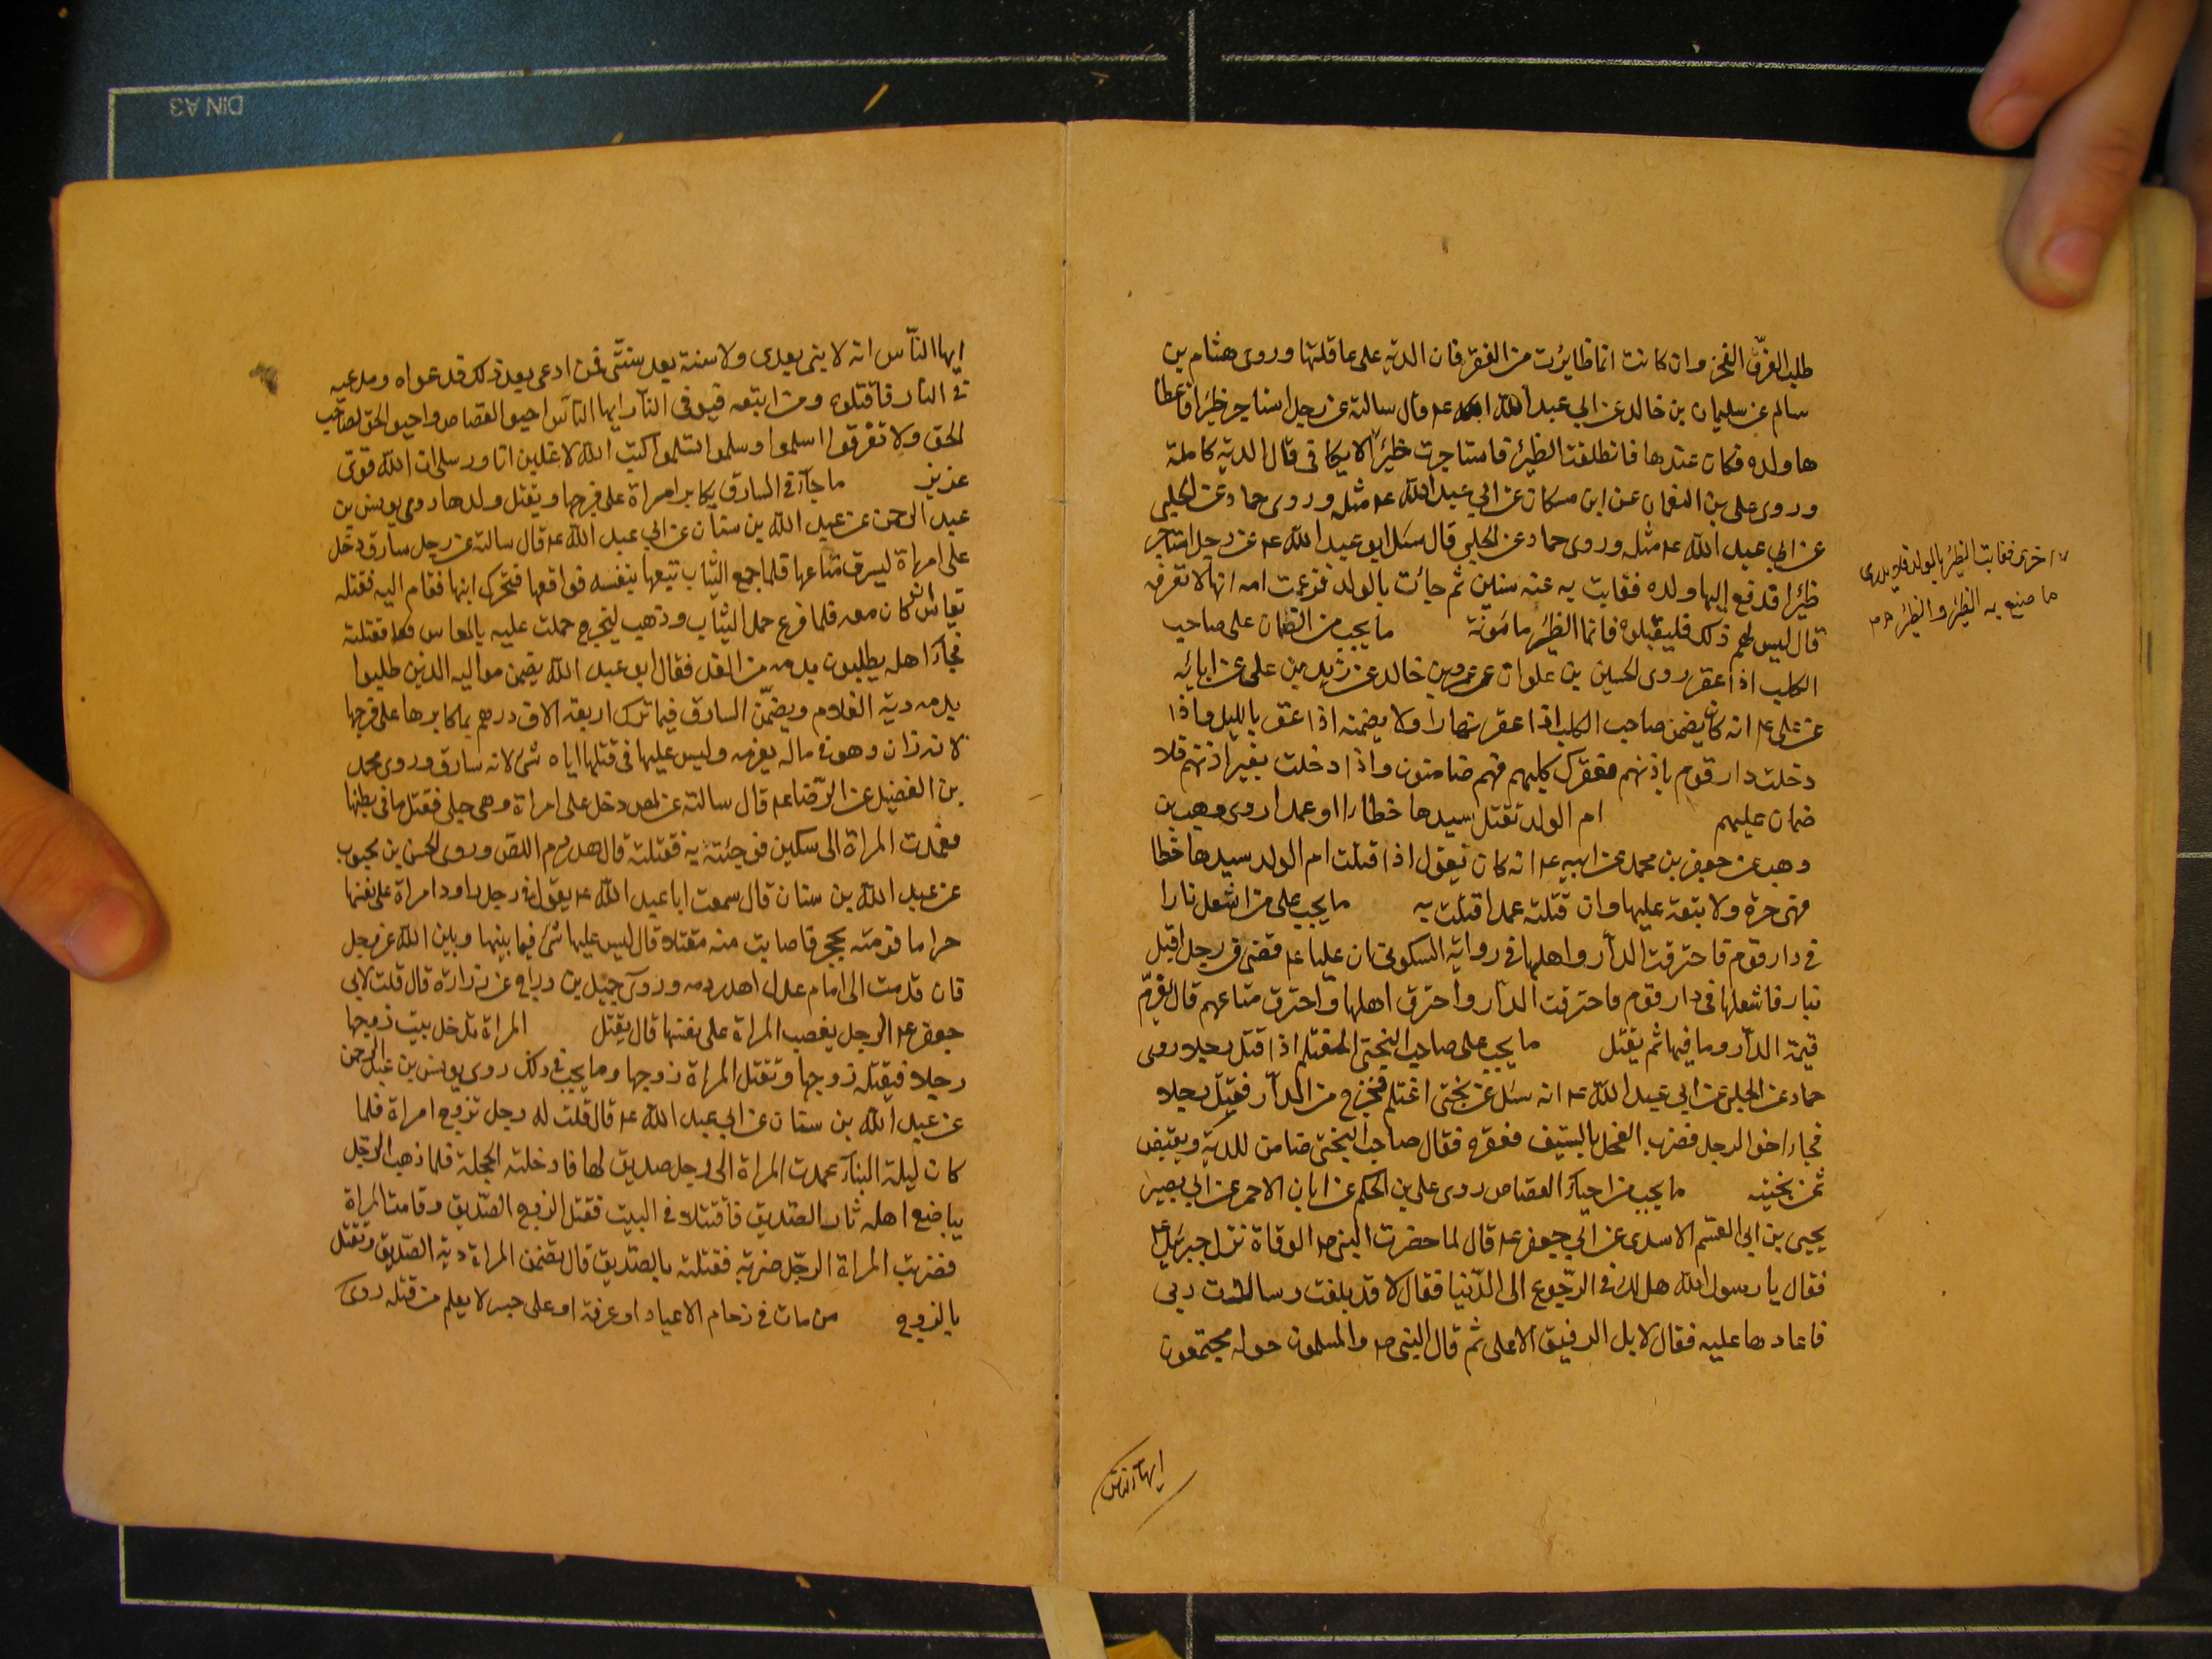 طلب العزّ والفخر وان كانت انما ظايرت من الفقر فان الدية على عاقلتها وروى هشام بن
سالم عن سليمان بن خالد عن ابي عبد الله عه قال سالته عن رجل استاجر ظئرا فاعطا
ها ولده فكان عندها فانطلقت الظئر فاستاجرت ظئرا لا يكافى قال الدية كاملة
وروى على بن النعمان عن ابن مسكان عن ابي عبد الله عه مثله وروى حماد عن الحلبي
عن ابي عبد الله عه مثله وروى حماد عن الحلبي قال سئل ابو عبد الله عه عن رجل استاجر
ظئرا فدفع اليها ولده فغابت به عنه سنين ثم جائت بالولد فزعمت امه انها لا تعرفه
قال ليس لهم ذلك فليقبلوه فانما الظئر مامونة ما يجب من الضمان على صاحب
الكلب اذا عقر روى الحسين بن علوان عن عمرو بن خالد عن زيد بن على عن ابائه
عن على عه انه كان يضمن صاحب الكلب اذا عقر نهارا ولا يضمنه اذا عقر بالليل واذا
دخلت دار قوم باذنهم فعقرك كلبهم فهم ضامنون واذا دخلت بغير اذنهم فلا
ضمان عليهم ام الولد تقتل سيدها خطاءا او عمدا روى وهب بن
وهب عن جعفر بن محمد عن ابيه عه انه كان يقول اذا قتلت ام الولد سيدها خطا
فهى حرة ولا تبعة عليها وان قتلته عمدا قتلت به ما يجب على من اشعل نارا
فى دار قوم فاحترقت الدار واهلها فى رواية السكونى ان عليا عه قضى فى رجل اقبل
بنار فاشعلها فى دار قوم فاحترقت الدار واحترق اهلها واحترق متاعهم قال يغرّم
قيمة الدار وما فيها ثم يقتل ما يجب على صاحب البختى المغتلم اذا قتل رجلا روى
حماد عن الحلبى عن ابى عبد الله عه انه سئل عن بختى اغتلم فخرج من الدار فقتل رجلا
فجاء اخو الرجل فضرب الفحل بالسيف فعقره فقال صاحب البختى ضامن للدية ويقتبض
ثمن بختيه ما يجب من احياء القصاص روى على بن الحكم عن ابان الاحمر عن ابي بصير
يحيى بن ابى القسم الاسدى عن ابى جعفر عه قال لما حضرت النبى صه الوفاة نزل جبرئيل عه
فقال يا رسول الله هل لك فى الرّجوع الى الدّنيا فقال لا قد بلغت رسالات ربى
فاعادها عليه فقال لا بل الرفيق الاعلى ثم قال النبى صه والمسلمون حوله مجتمعون
ايها الناس
اخرى فغابت الظئر بالولد فلا يدرى
ما صنع به الظئر والظئر
ايها النّاس انه لا نبى بعدى ولا سنة بعد سنّتى فمن ادعى بعد ذلك فدعواه ومدعيه
فى النار فاقتلوه ومن اتبعه فهو فى النار ايها النّاس احيوا القصاص واحيوا الحق لصاحب
الحق ولا تفرقوا اسلموا وسلموا تسلموا كتب الله لاغلبن انا ورسلى ان الله قوى
عزيز ما جاء فى السارق يكابر امراة على فرجها ويقتل ولدها روى يونس بن
عبد الرحمن عن عبد الله بن سنان عن ابي عبد الله عه قال سالته عن رجل سارق دخل
على امراة ليسرق متاعها فلما جمع الثياب تبعها بنفسه فواقعها فتحرك ابنها فقام اليه فقتله
بفاس كان معه فلما فرغ حمل الثياب وذهب ليخرج حملت عليه بالفاس فقتلته
فجاء اهله يطلبون بدمه من الغد فقال ابو عبد الله يضمن مواليه الذين طلبوا
بدمه دية الغلام ويضمّن السارق فيما ترك اربعة الاف درهم بما كابرها على فرجها
لانه زان وهو فى ماله يغرمه وليس عليها فى قتلها اياه شئ لانه سارق وروى محمد
بن الفضيل عن الرّضا عه قال سالته عن لص دخل على امراة وهى حبلى فقتل ما فى بطنها
فعمدت المراة الى سكين فوجئته به فقتلته قال هدر دم اللصّ وروى الحسن بن محبوب
عن عبد الله بن سنان قال سمعت ابا عبد الله عه يقول فى رجل راود امراة على نفسها
حراما فرمته بحجر فاصابت منه مقتلا قال ليس عليها شئ فيما بينها وبين الله عز وجل
فان قدمت الى امام عدل اهدر دمه وروى جميل بن دراج عن زرارة قال قلت لابى
جعفر عه الرجل يغصب المراة على نفسها قال يقتل المراة تدخل بيت زوجها
رجلا فيقتله زوجها وتقتل المراة زوجها وما يجب فى ذلك روى يونس بن عبد الرحمن
عن عبد الله بن سنان عن ابي عبد الله عه قال قلت له رجل تزوج امراة فلما
كان ليلة البناء عمدت المراة الى رجل صديق لها فادخلته الحجلة فلما ذهب الرّجل
يباضع اهله ثار الصّديق فاقتتلا فى البيت فقتل الزوج الصّديق وقامت المراة
فضربت المراة الرجل ضربة فقتلته بالصّديق قال تضمن المراة دية الصّديق وتقتل
بالزوج من مات فى زحام الاعياد او عرفة او على جسر لا يعلم من قتله روى